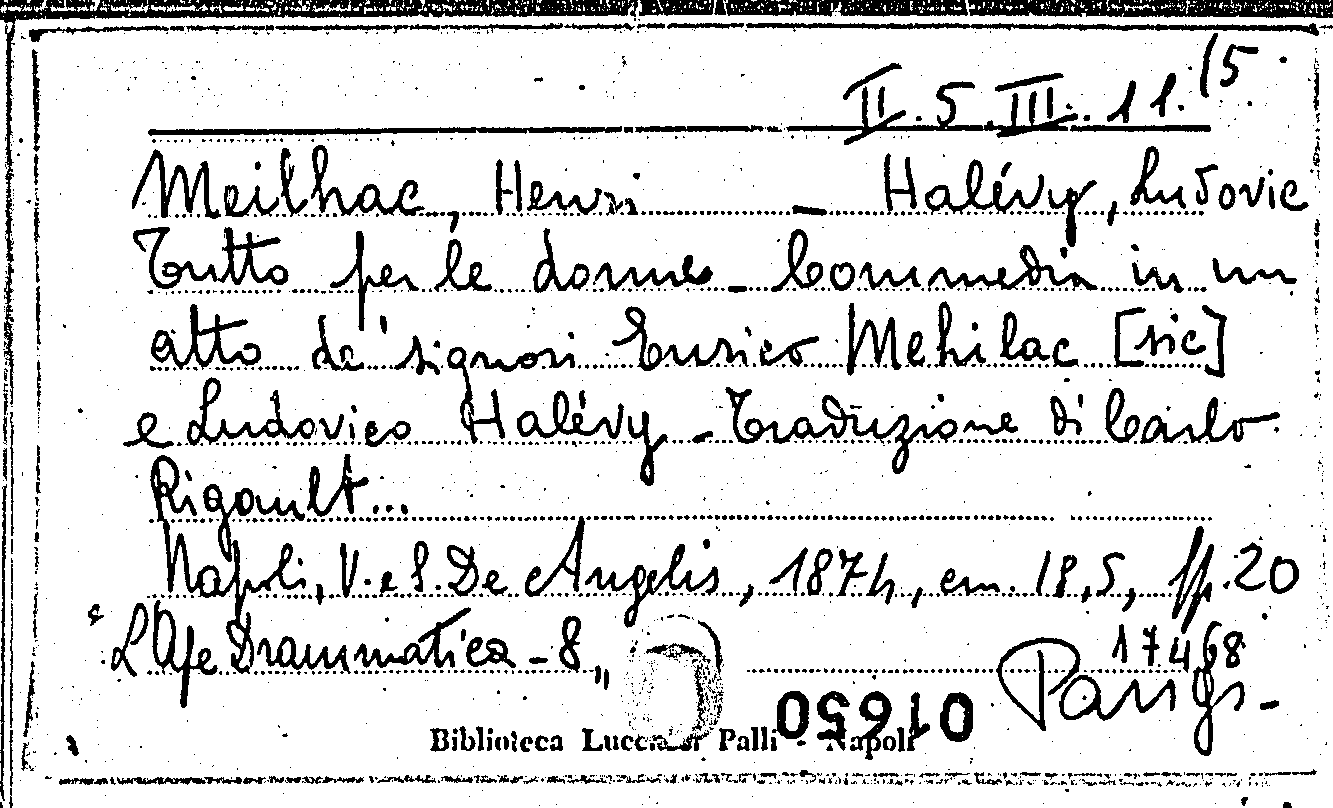 II.5.III.11.(5
Meilhac, Henri – Halévy, Ludovic
Tutto per le donne – Commedia in un
atto de' signori Enrico Mehilac [sic]
e Ludovico Halévy – Traduzione di Carlo
Rigault...
Napoli, V. e S. De Angelis, 1874, cm. 18,5, pp. 20
"L'Ape Drammatica – 8"
17468
01650
Biblioteca Lucchesi Palli - Napoli